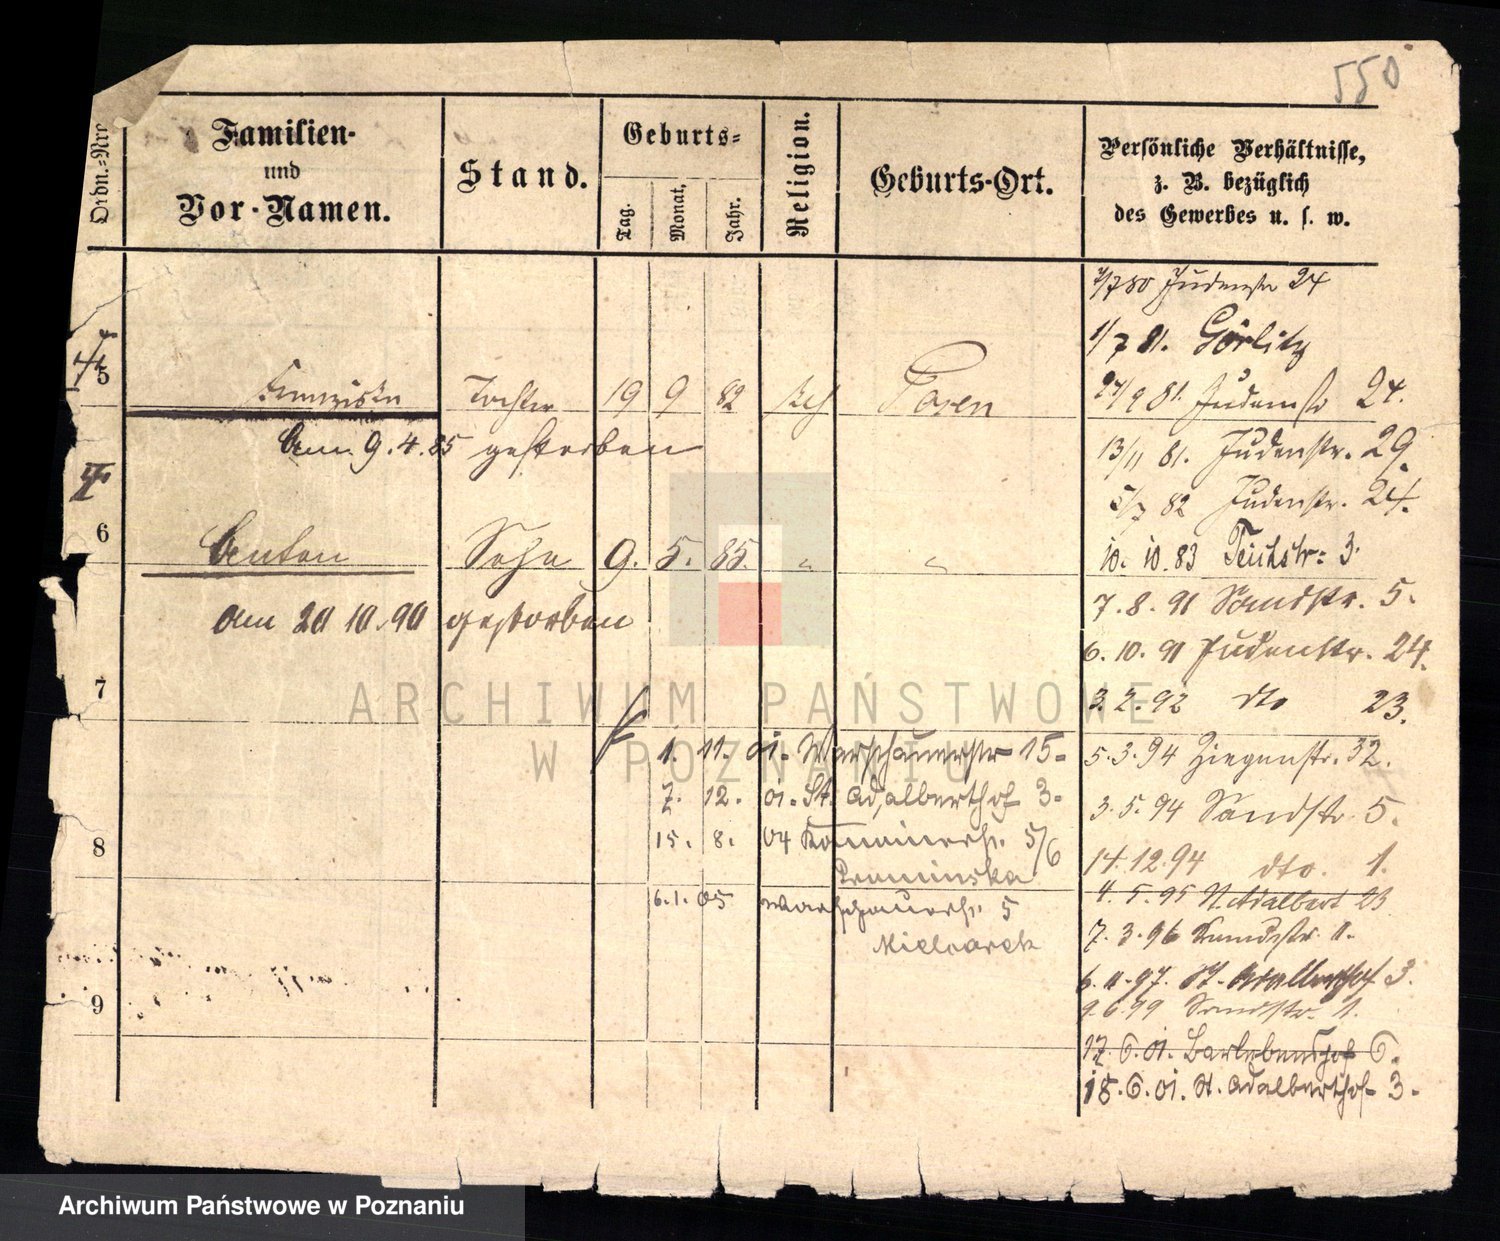 550
Ordn.-Nro
Familien-
und
Vor-Namen.
Stand.
Geburts-
Tag.
Monat,
Jahr.
Religion.
Geburts-Ort.
Persönliche Verhältnisse,
z. B. bezüglich
des Gewerbes u. s. w.
5 Franziska Tochter 19 9 82 kth Posen
am 9.4.85 gestorben
6 Anton Sohn 9. 5. 85. " "
am 20 10.90 gestorben
7
1. 11. 01. Warschauerstr 15-
7. 12. 01. St. Adalberthof 3-
8
15. 8. 04 5/6
6.1.05 Warschauerstr. 5
9
7/80 Judenstr 24
1/7 81. Görlitz
27/9 81. Judenstr 24.
13/11 81. Judenstr. 29.
5/7 82 Judenstr. 24.
10. 10. 83 Teichstr: 3.
7. 8. 91 Sandstr. 5.
6. 10. 91 Judenstr. 24.
3. 2. 92 dto 23.
5. 3. 94 Ziegenstr. 32.
3. 5. 94 Sandstr. 5.
14. 12. 94 dto. 1.
4. 5. 95 St. Adalbert 23
7. 3. 96 Sandstr. 1.
6. 11. 97. St. Adalberthof 3.
9. 6. 99 Sandstr. 1.
17. 6. 01. Barlebenshof 6.
18. 6. 01. St. Adalberthof 3-
ARCHIWUM PAŃSTWOWE
W POZNANIU
Archiwum Państwowe w Poznaniu